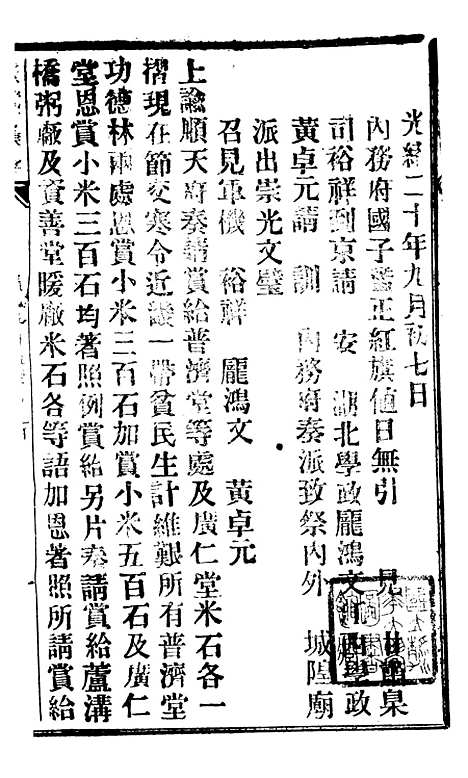 光緒二十年九月初七日
內務府國子監正紅旗値日無引 見 林臬
司裕祥到京請 安 湖北學政龐鴻文江西學政
黃卓元請 訓 內務府奏派致祭內外 城隍廟
派出崇光文璧
召見軍機 裕祥 龐鴻文 黃卓元
上諭順天府奏請賞給普濟堂等處及廣仁堂米石各一
摺現在節交寒令近畿一帶貧民生計維艱所有普濟堂
功德林兩處恩賞小米三百石加賞小米五百石及廣仁
堂恩賞小米三百石均著照例賞給另片奏請賞給蘆溝
橋粥廠及資善堂暖廠米石各等語加恩著照所請賞給